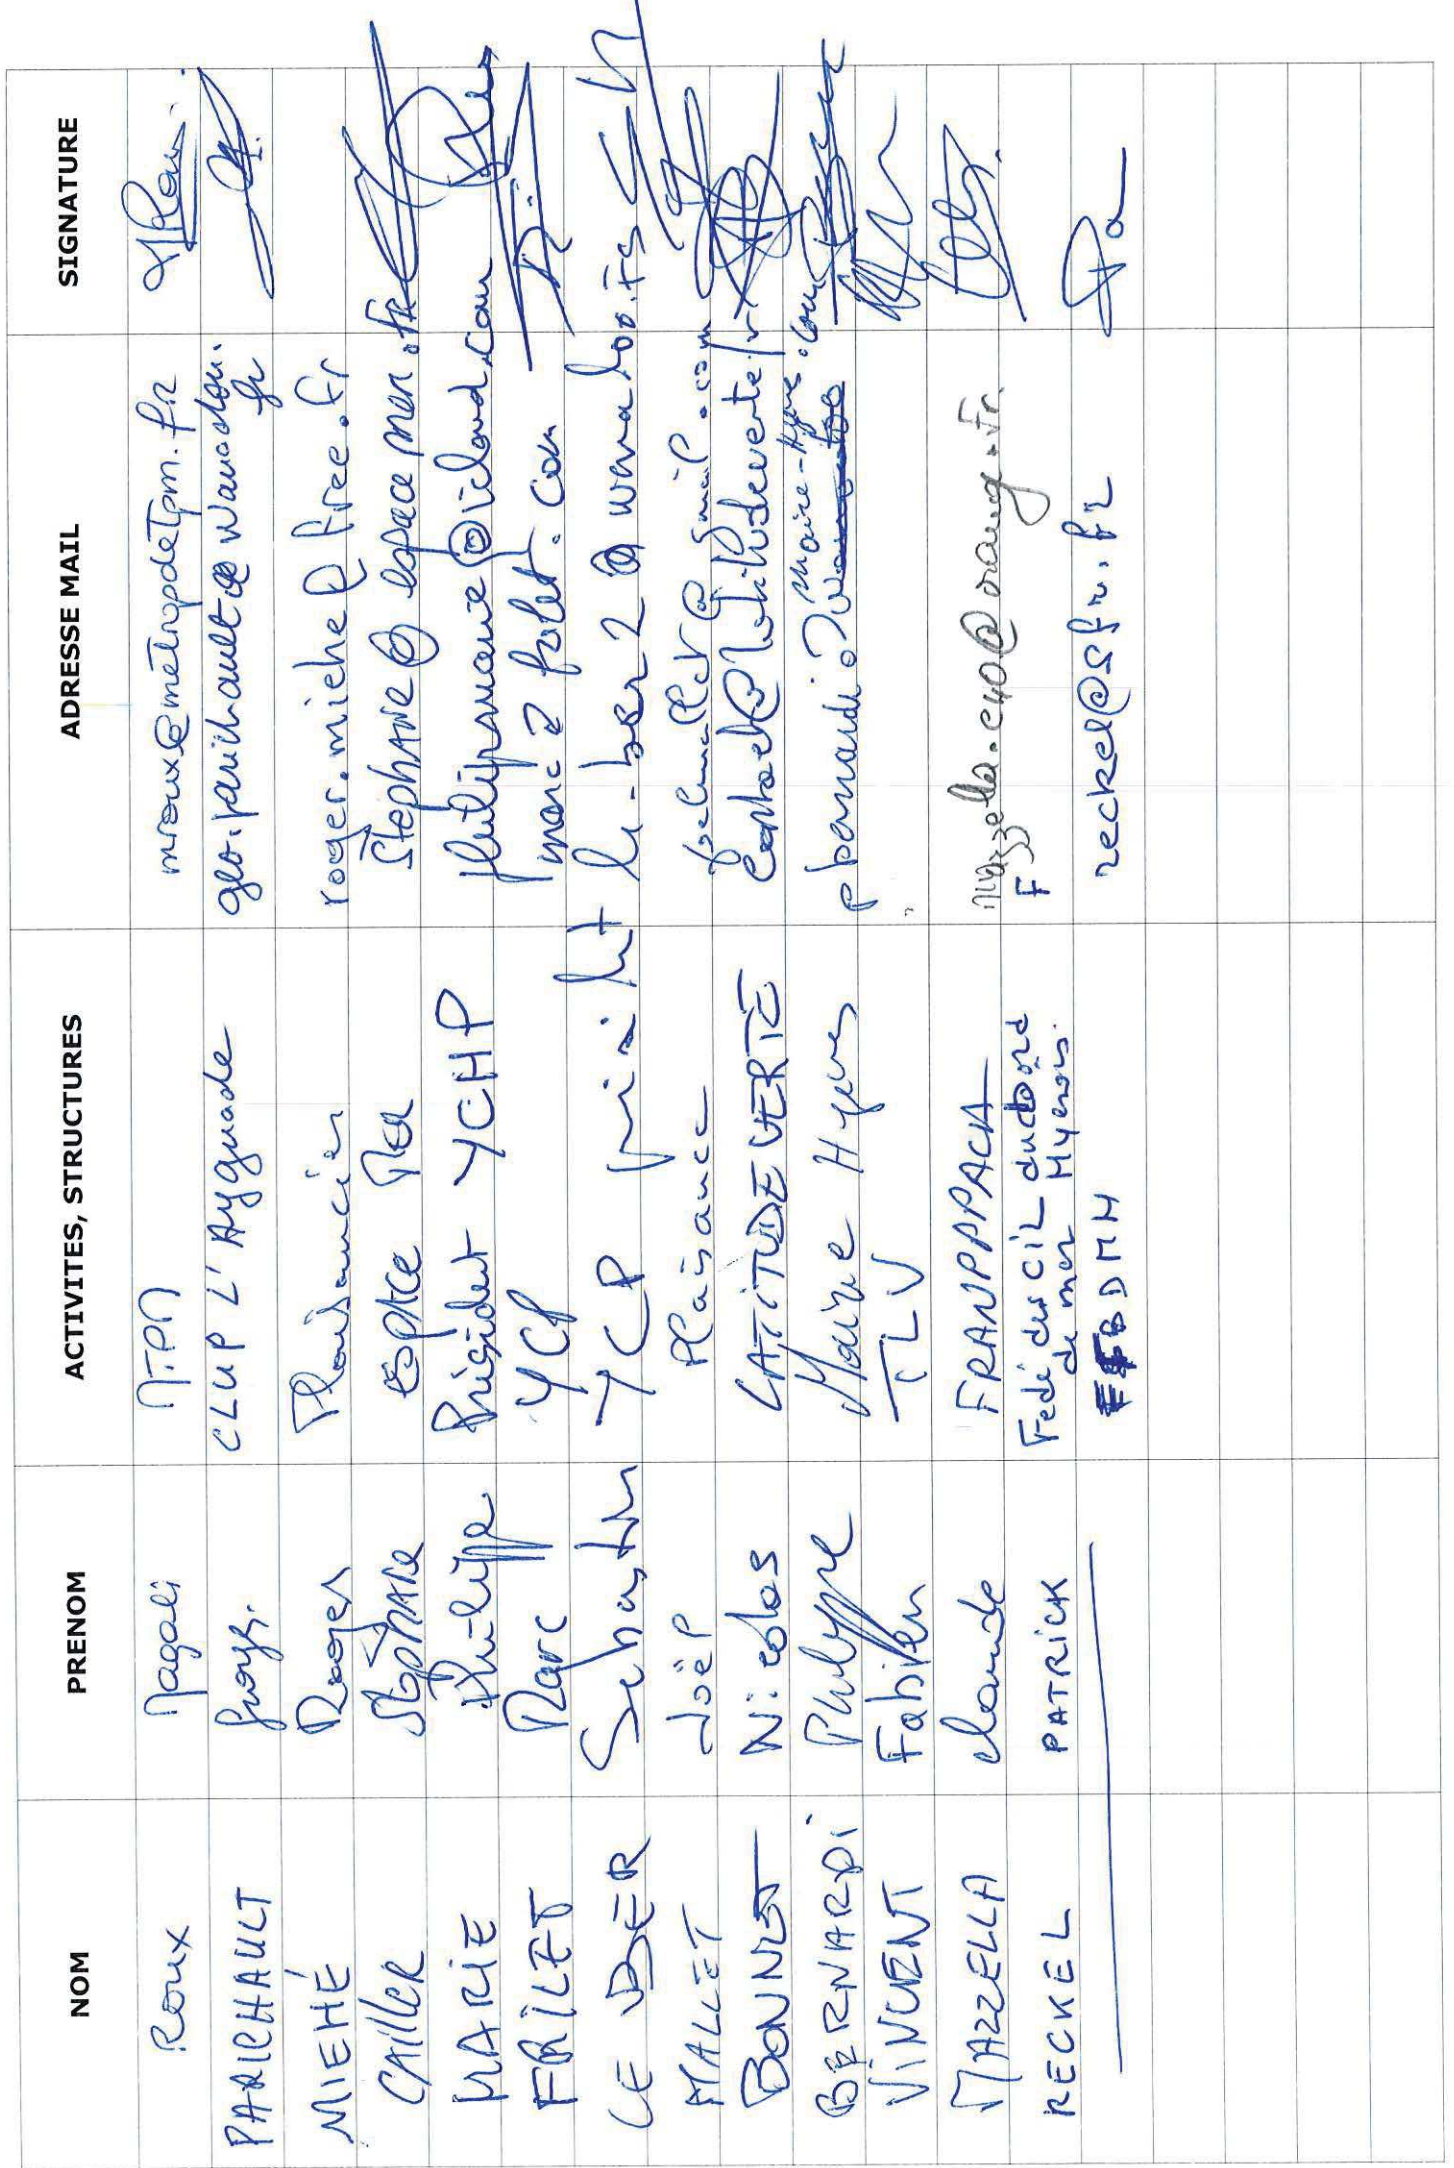 NOM PRENOM ACTIVITES, STRUCTURES ADRESSE MAIL SIGNATURE
Roux Magali MTPM mroux@metropoletpm.fr
PARICHAULT CLUP L'Ayguade geo.parichault@wanadoo.fr
MIEHÉ Roger Plaisancier roger.miehe@free.fr
CAILLER Stéphane espace mer stephane@espacemer.fr
MARIE Philippe Président YCHP philipmarie@icloud.com
FRILET Marc YCP marc@frilet.com
LE BER YCP le-ber2@wanadoo.fr
MALLET Joël Plaisance joelmallet@gmail.com
BONNET Nicolas LATITUDE VERTE contact@latitudeverte.fr
BERNARDI Philippe Mairie Hyeres pbernardi@mairie-hyeres.com
VINCENT Fabien TLV
MAZZELLA claude FRANPPACA mazzella.
RECKEL PATRICK Fede des CIL du bord de mer Hyerois. F
BDMH reckel@sfr.fr